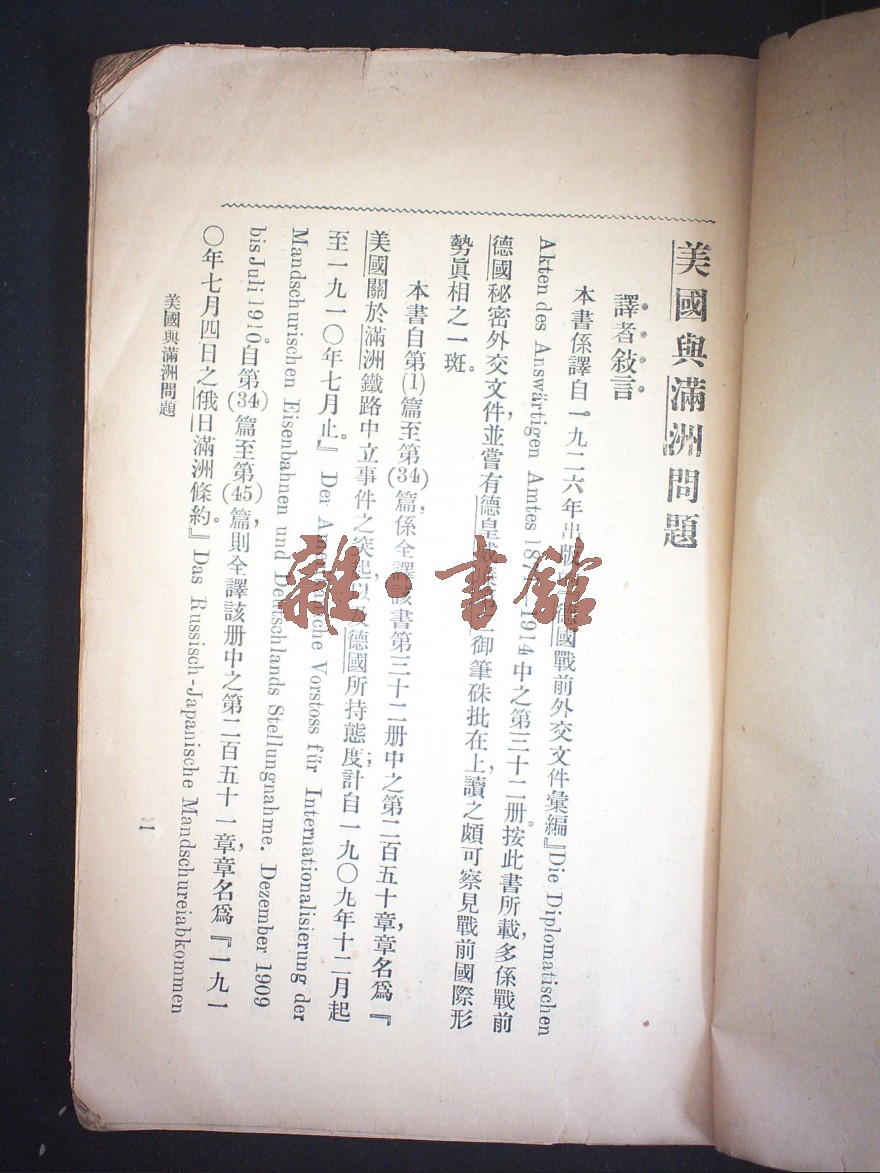 美國與滿洲問題
譯者敍言
本書係譯自一九二六年出版 德國戰前外交文件彙編』Die Diplomatischen
Akten des Answärtigen Amtes 1871—1914中之第三十二册。按此書所載，多係戰前
德國秘密外交文件，並嘗有德皇威 御筆硃批在上，讀之頗可察見戰前國際形
勢眞相之一斑。
本書自第(1)篇至第(34)篇，係全譯該書第三十二册中之第二百五十章，章名爲『
美國關於滿洲鐵路中立事件之突起，以及德國所持態度；計自一九〇九年十二月起
至一九一〇年七月止。』Der Amerikanische Vorstoss für Internationalisierung der
Mandschurischen Eisenbahnen und Deutschlands Stellungnahme. Dezember 1909
bis Juli 1910。自第(34)篇至第(45)篇，則全譯該册中之第二百五十一章，章名爲『一九一
〇年七月四日之俄日滿洲條約。』Das Russisch-Japanische Mandschureiabkommen
美國與滿洲問題
一
雜·書館